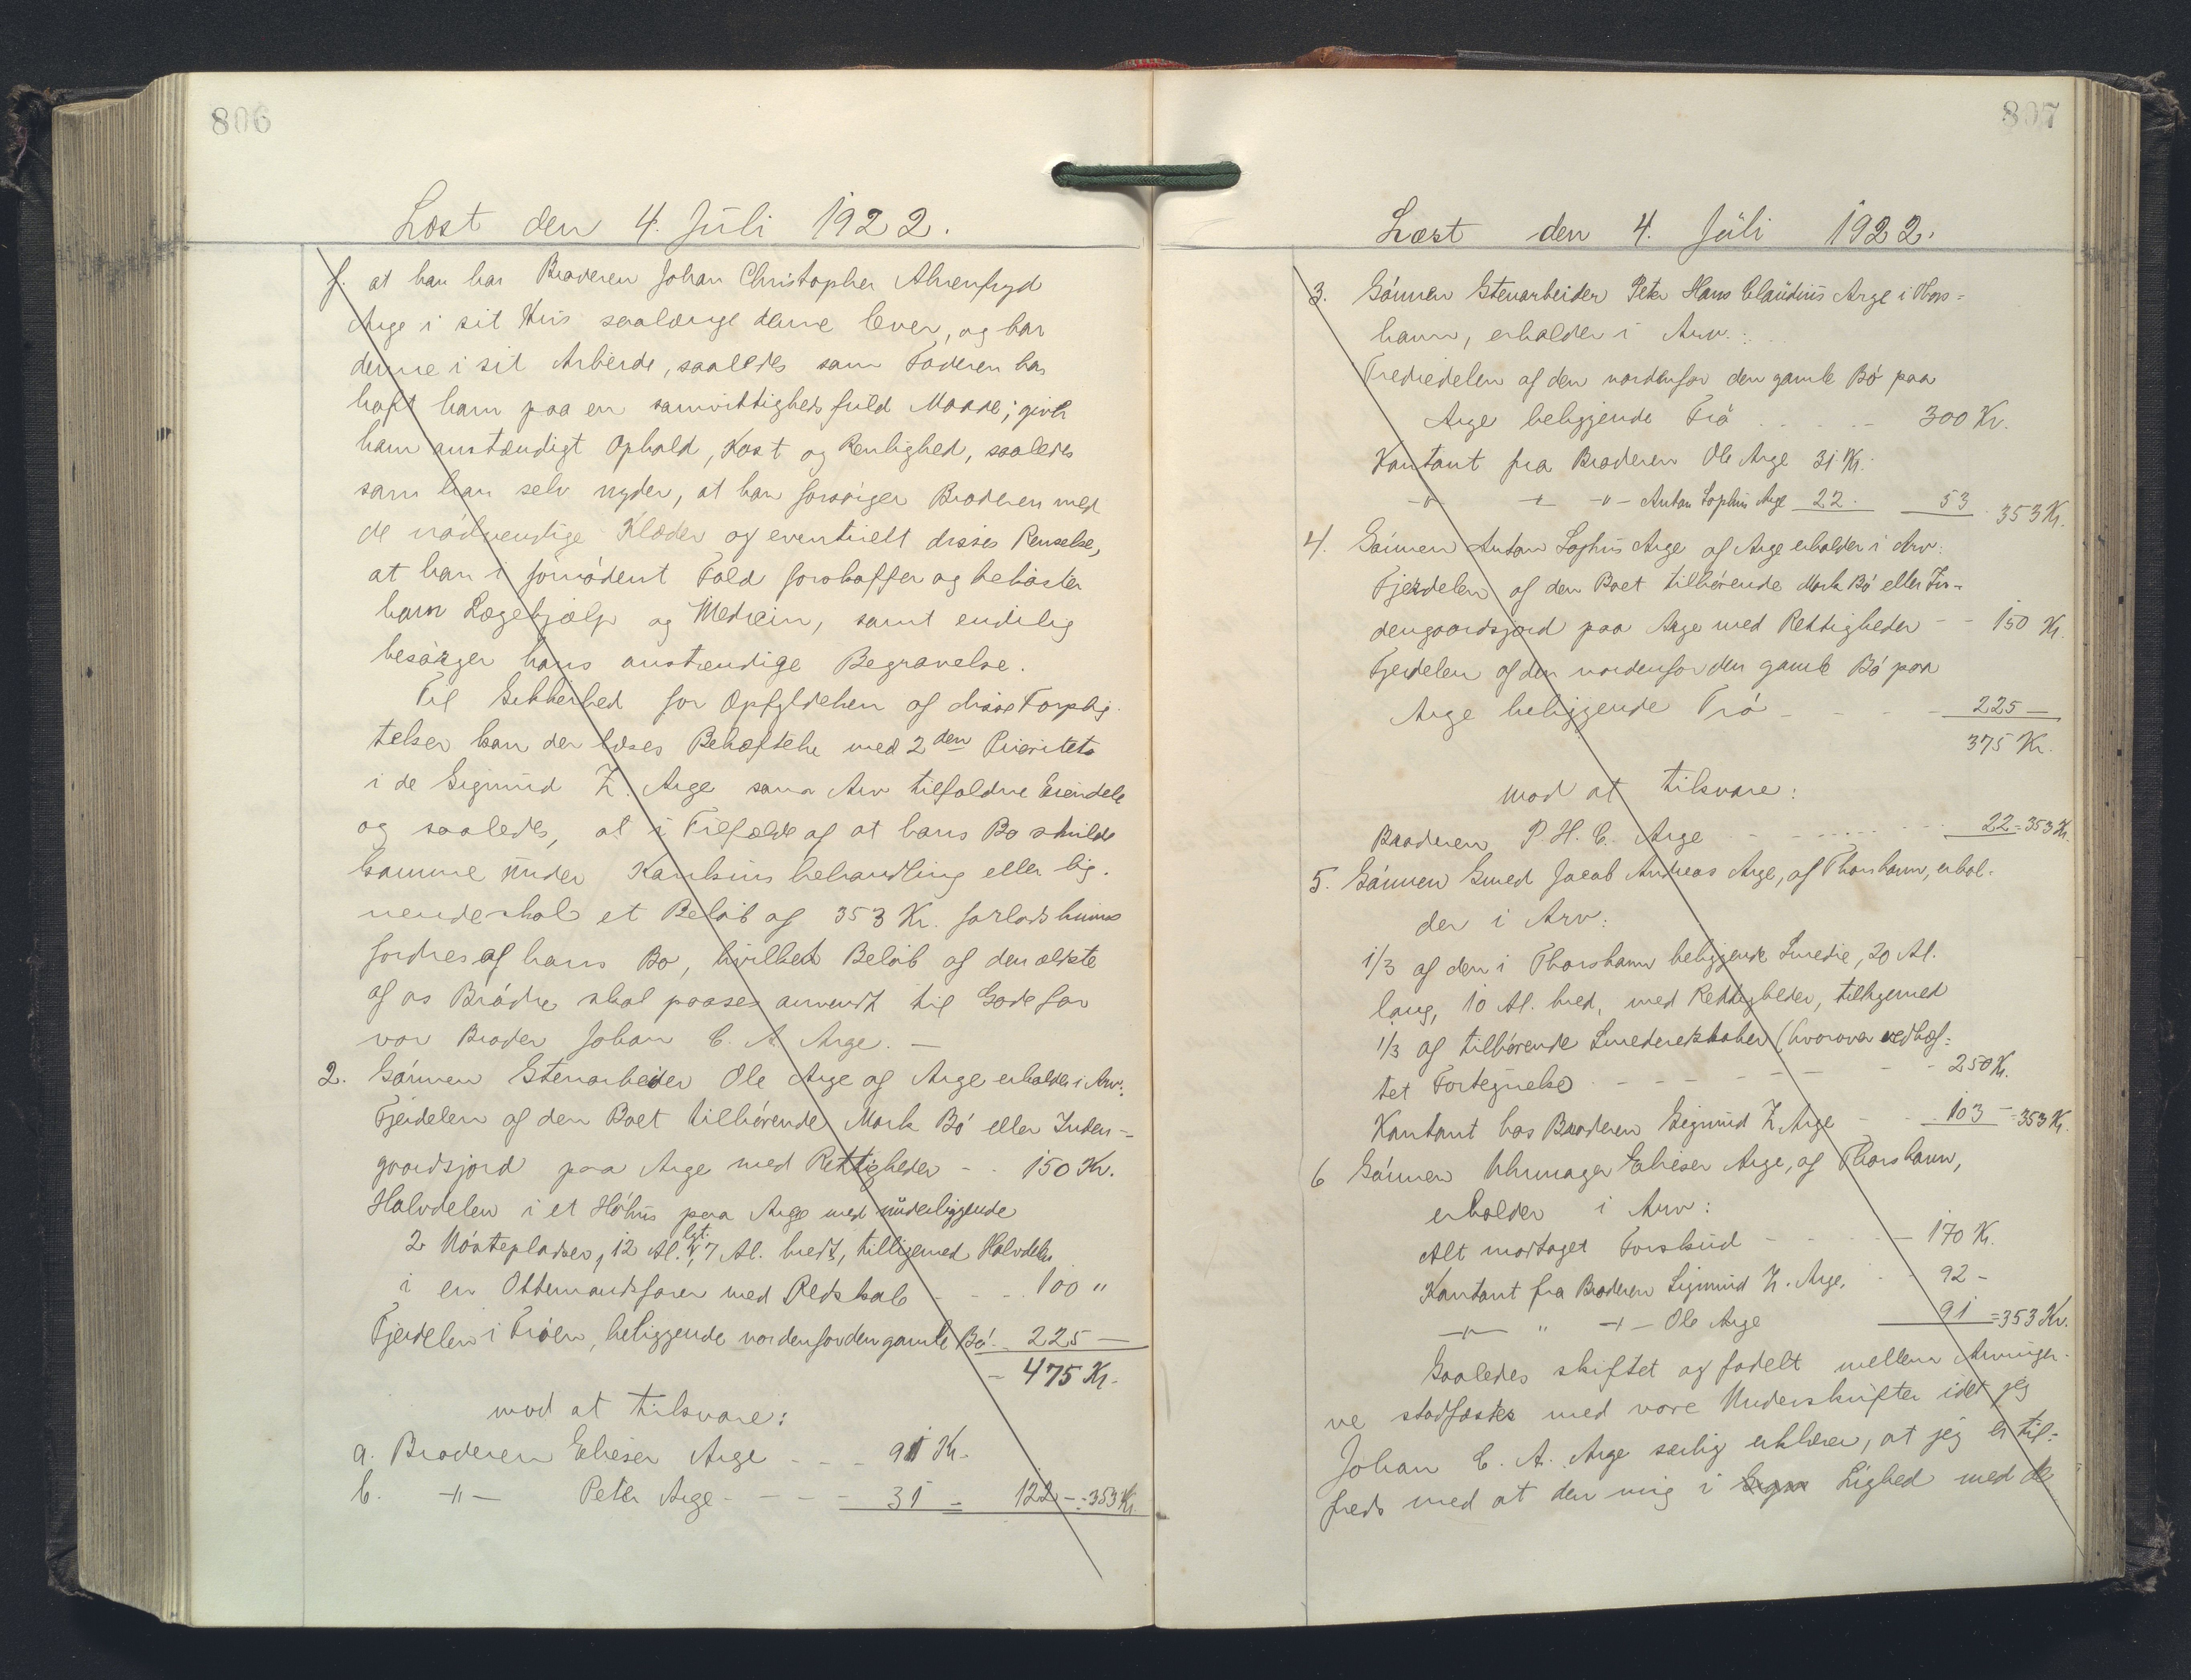 806
Læst den 4. Juli 1922.
f. at han har Broderen Johan Christopher Ahrenfryd
Arge i sit Hus saalænge denne lever, og har
denne i sit Arbeide, saaledes som Faderen har
haft ham paa en samvittighedsfuld Maade; giver
ham anstændigt Ophold, Kost og Renlighed, saaledes
som han selv nyder, at han forsørger Broderen med
de nødvendige Klæder og eventuelt disses Renselse,
at han i fornødent Fald forskaffer og bekoster
ham Lægehjælp og Medicin, samt endelig
besørger hans anstændige Begravelse.
Til Sikkerhed for Opfyldelsen af disse Forplig-
telser kan der læses Behæftelse med 2den Prioritets
i de Sigmund Z. Arge som Arv tilfaldne Eiendele
og saaledes, at i Tilfælde af at hans Bo skulde
komme under Konkursbehandling eller lig-
nende skal et Beløb af 353 Kr. forlods kunne
fordres af hans Bo, hvilket Beløb af den ældste
af os Brødre skal paasees anvendt til Gode for
vor Broder Johan C. A. Arge. —
2. Sønnen Stenarbeider Ole Arge af Arge erholder i Arv:
Fjerdelen af den Boet tilhørende Mark Bø eller Inden-
gaardsjord paa Arge med Rettigheder - - 150 Kr.
Halvdelen i et Høhus paa Arge med underliggende
2 Nøstepladser, 12 Al. lgt. 7 Al. bredt, tilligemed Halvdelen
i en Ottemandsfarer med Redskab - - - 100 "
Fjerdelen i Trøen, beliggende nordenfor den gamle Bø - 225 —
- 475 Kr.
mod at tilsvare:
a. Broderen Elieser Arge - - - 91 Kr.
b. -"- Peter Arge - - - - 31 - 122 - = 353 Kr.
807
Læst den 4. Juli 1922.
3. Sønnen Stenarbeider Peter Hans Claudius Arge i Thors=
havn, erholder i Arv:
Trediedelen af den nordenfor den gamle Bø paa
Arge beliggende Trø - - - - - 300 Kr.
Kontant fra Broderen Ole Arge 31 Kr.
-"- -"- -"- Anton Sophus Arge 22. 53 353 Kr.
4. Sønnen Anton Sophus Arge af Arge erholder i Arv:
Fjerdelen af den Boet tilhørende Mark Bø eller In-
dengaardsjord paa Arge med Rettigheder - - 150 Kr.
Fjerdelen af den nordenfor den gamle Bø paa
Arge beliggende Trø - - - - 225 —
375 Kr.
mod at tilsvare:
Broderen P. H. C. Arge - - - - - - 22 = 353 Kr.
5. Sønnen Smed Jacob Andreas Arge, af Thorshavn, erhol-
der i Arv:
1/3 af den i Thorshavn beliggende Smedie, 20 Al.
lang, 10 Al. bred, med Rettigheder, tilligemed
1/3 af tilhørende Smederedskaber (hvorover vedhæf=
tet Fortegnelse) - - - - - - - - 250 Kr.
Kontant hos Broderen Sigmund Z. Arge - - 103 - = 353 Kr.
6 Sønnen Uhrmager Elieser Arge, af Thorshavn,
erholder i Arv:
Alt modtaget Forskud - - - - - 170 Kr.
Kontant fra Broderen Sigmund Z. Arge. - - 92 -
-"- " -"- Ole Arge 91 = 353 Kr.
Saaledes skiftet og fodelt mellem Arvinger-
ne stadfæstes med vore Underskrifter idet jeg
Johan C. A. Arge særlig erklærer, at jeg er til=
freds med at den mig i Lighed med de